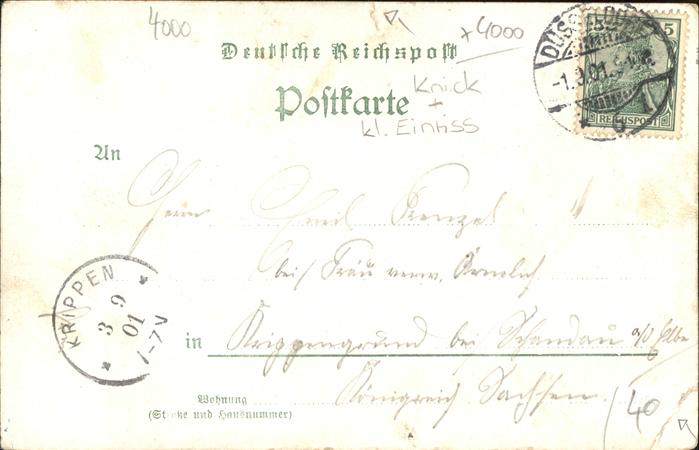 4000
+4000
Deutsche Reichspost
Postkarte
Knick
+
kl. Einriss
DÜSSELDORF
-1.9.01.
5
REICHSPOST
An
Herrn Emil
bei Frau verw.
in Krippengrund bei Schandau a/d Elbe
Königreich Sachsen
Wohnung
(Straße und Hausnummer)
KRIPPEN
3 9
01
1-7V
40